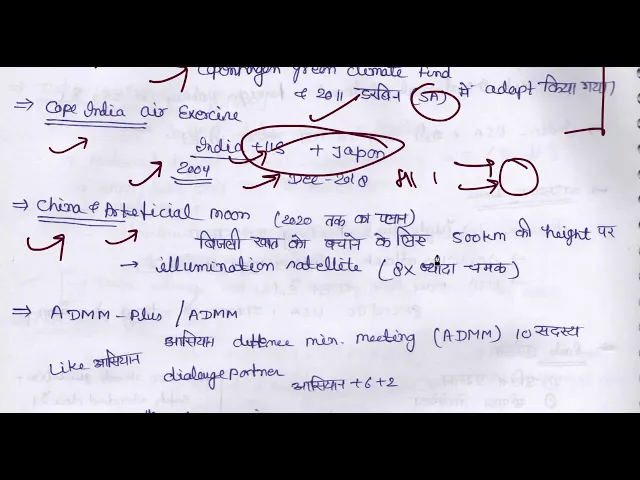 Coponhagen green climate find
& 2011 डरबिन (SA) में adapt किया गया।
⇒ Cope India air Exercise
India + US + Japan
2004 Dec-2018
⇒ China & Arteficial moon (2020 तक का प्लान)
बिजली खर्च को बचाने के लिए 500km की height पर
→ illumination satellite (8x ज्यादा चमक)
⇒ ADMM-Plus / ADMM
आसियान deffence min. meeting (ADMM) 10 सदस्य
Like आसियान dialouge partner
आसियान +6+2